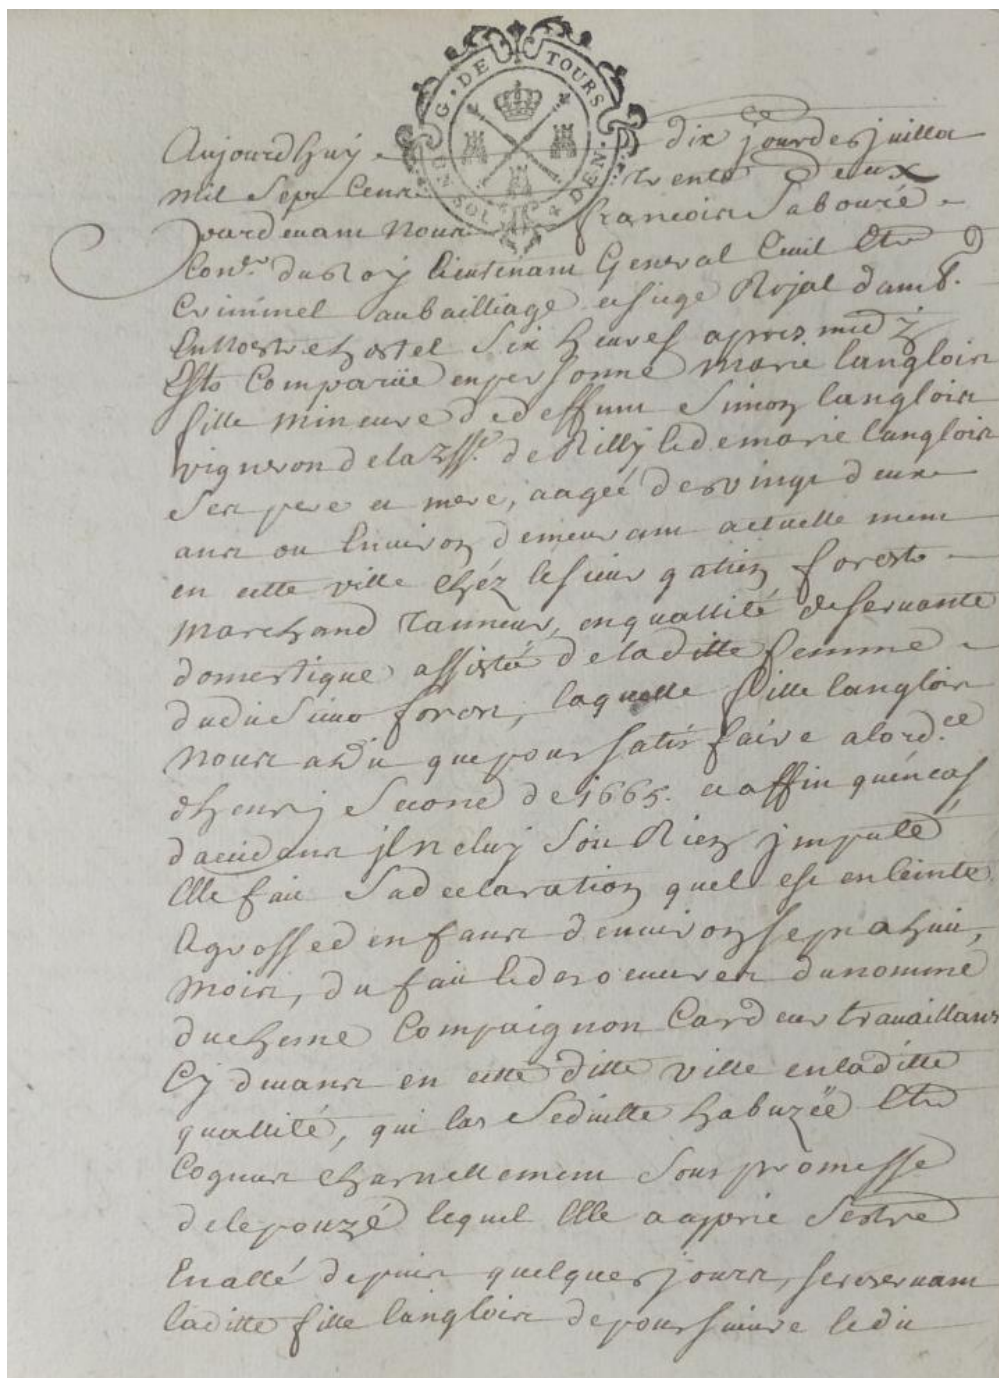 G. DE TOURS
UN SOL 4 DEN.
Aujourdhuy dix jour de juillet
mil sept cent trente deux
pardevant nous francois Sabouré
Con.er du Roy lieutenant General Civil Et
Criminel au bailliage et siege Royal damb.
En nostre hostel six heures apres midy
Est Comparüe en personne marie langlois
fille mineure de deffunt Simon langlois
vigneron de la psse. de Rilly et de marie langlois
ses pere et mere, aagée de vingt deux
ans ou Environ demeurant actuellement
en cette ville chéz le sieur gatien forest
marchand Tanneur, en quallité de servante
domestique assistée de laditte femme
dudit Sieur forest, laquelle fille langlois
nous a dit que pour satisfaire a lord.ce
dhenry Second de 1665. et affin quén cas
daccidans jl ne luy soit Rien jmputé
Elle fait sa declaration quel est enceinte
Et grosse denfant denviron sept a huit
mois, du fait et des oeuvres du nommé
duchesne Compaignon Cardeur travaillant
Cy devant en cette ditte ville en laditte
quallité, qui las seduitte habuzëe Et
Cognus charnellement sous promesse
de lepouzé lequel Elle a appris sestre
En allé depuis quelques jours, se reservant
laditte fille langlois de poursuivre ledit